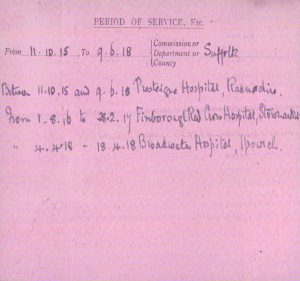 PERIOD OF SERVICE, Etc.
From 11.10.15 To 9.6.18 Commission or Department or County Suffolk
Between 11.10.15 and 9.6.18 Presteigne Hospital,
From 1.8.16 to 28.2.17 Finborough Red Cross Hospital, Stowmarket
" 4.4.18 " 18.4.18 Broadwater Hospital, Ipswich.